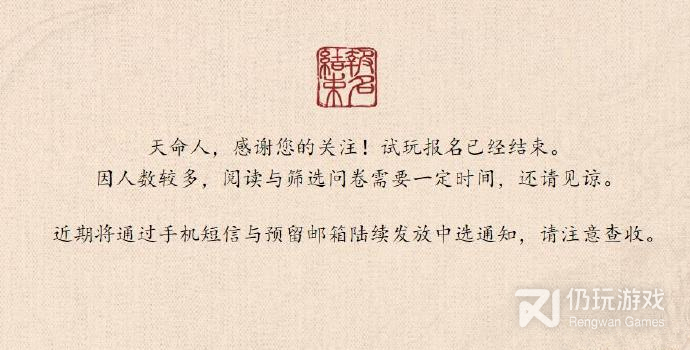 報名
結束
天命人，感谢您的关注！试玩报名已经结束。
因人数较多，阅读与筛选问卷需要一定时间，还请见谅。
近期将通过手机短信与预留邮箱陆续发放中选通知，请注意查收。
仍玩游戏
Rengwan Games